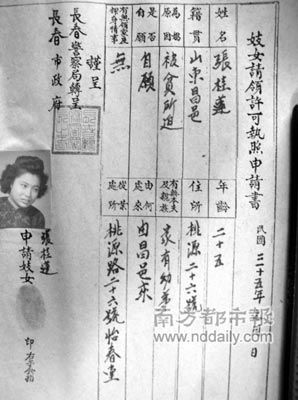 妓女請領許可執照申請書
民國三十五年 月 日
姓名 張桂蓮 年齡 二十五
籍貫 山東昌邑 住所 桃源二十六號
為娼原因 被貧所迫 有無本夫及親族 家有幼弟
是否自願 自願 由何處來 由昌邑來
有無領家及押身情事 無 從業處所 桃源路二十六號怡春堂
謹呈
長春警察局轉呈
長春市政府
張桂蓮
申請妓女
印
南方都市報
www.nddaily.com